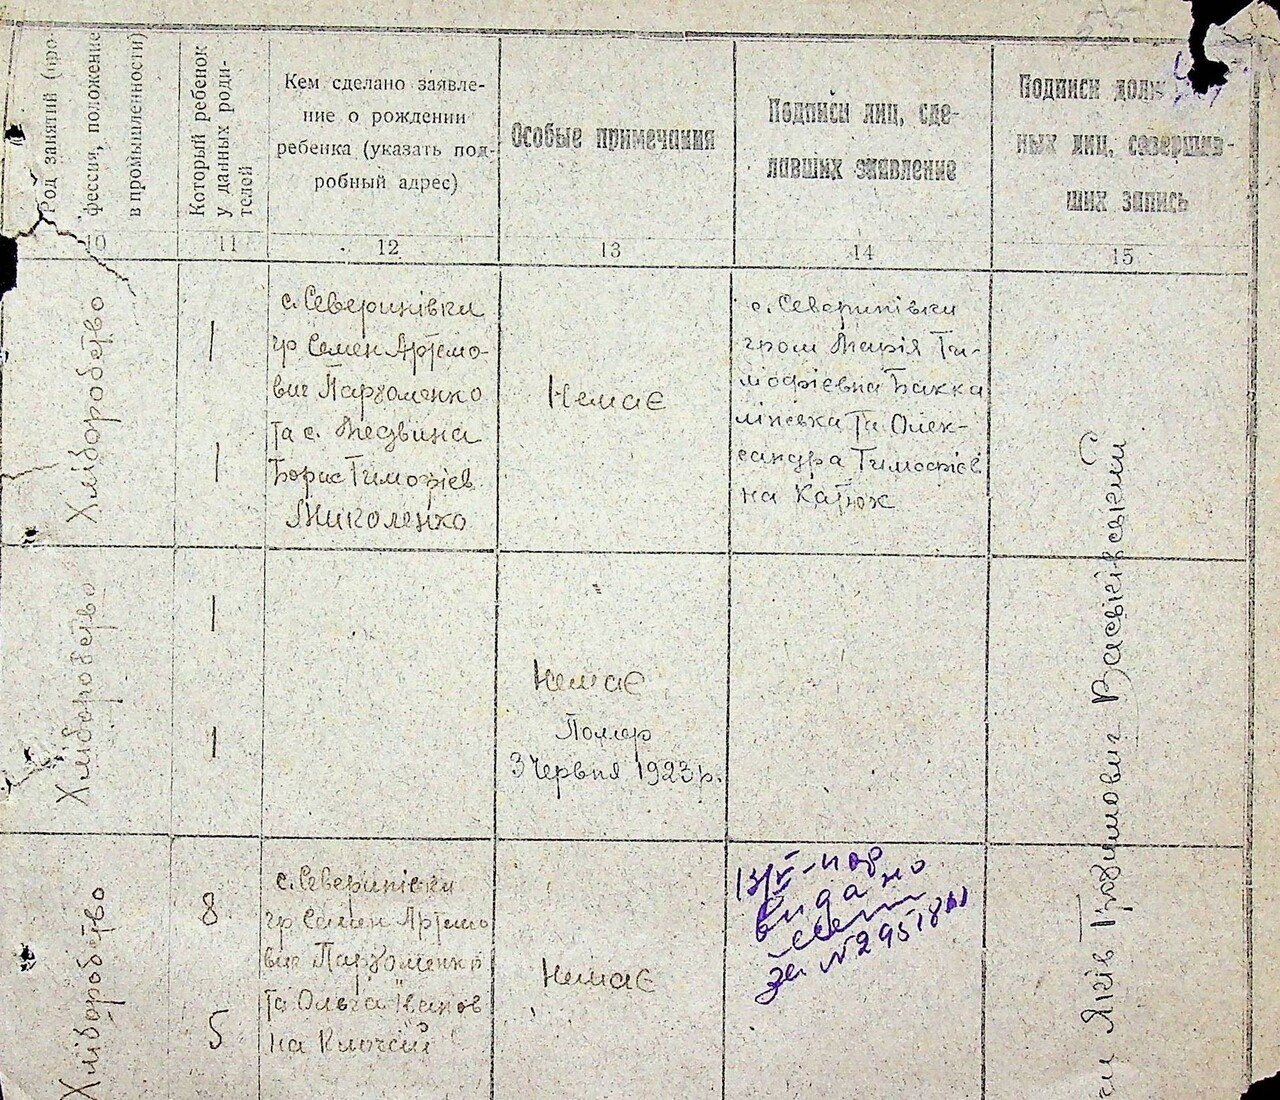 Род занятий (про-
фессия, положение
в промышленности)
Который ребенок
у данных роди-
телей
Кем сделано заявле-
ние о рождении
ребенка (указать под-
робный адрес)
Особые примечания
Подписи лиц, сде-
лавших заявление
Подписи долж
ных лиц, совершив-
ших запись
10
11
12
13
14
15
Хліборобство
1
1
с. Северинівки
гр Семен Артемо-
вич Пархоменко
та с. Медвина
Борис Тимофієв
Миколенко
Немає
с. Северинівки
гром Марія Ти-
мофієвна Бакка
лінська та Олек-
сандра Тимофієв
на Катюк
Хліборобство
1
1
Немає
Помер
3 Червня 1923 р.
Хліборобство
8
5
с. Северинівки
гр Семен Артемо
вич Пархоменко
та Ольга Іванов
на Ключсій
Немає
видано
за №29518
Яків Васьківський